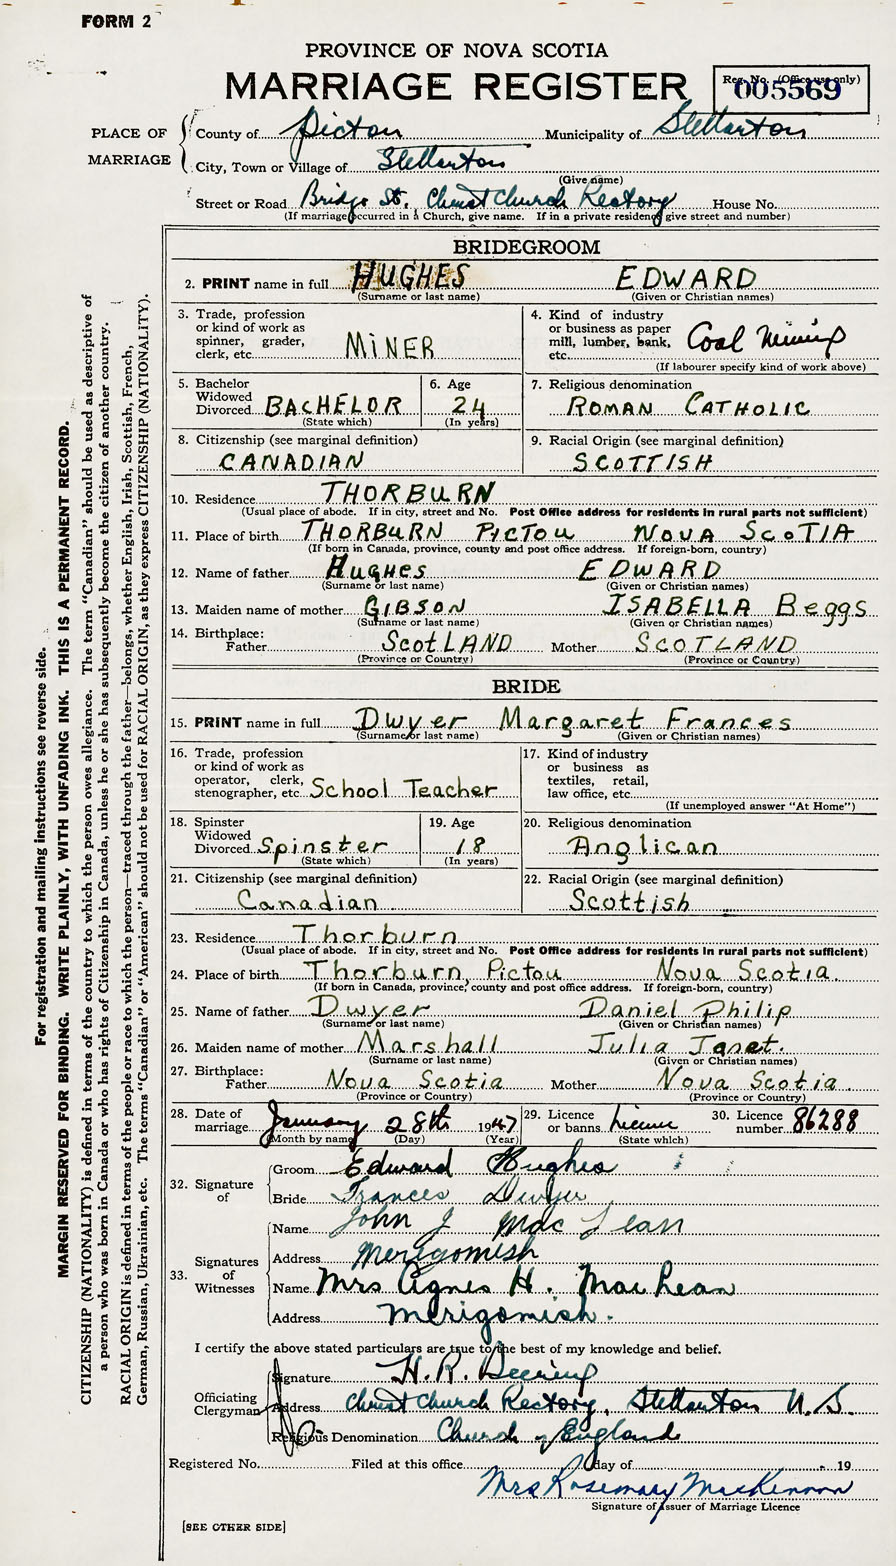 FORM 2
PROVINCE OF NOVA SCOTIA
MARRIAGE REGISTER
Reg. No. (Office use only)
005569
PLACE OF MARRIAGE
County of Pictou Municipality of Stellarton
City, Town or Village of Stellarton
(Give name)
Street or Road Bridge St. Christ Church Rectory House No.
(If marriage occurred in a Church, give name. If in a private residence give street and number)
BRIDEGROOM
2. PRINT name in full HUGHES EDWARD
(Surname or last name) (Given or Christian names)
3. Trade, profession or kind of work as spinner, grader, clerk, etc. MINER
4. Kind of industry or business as paper mill, lumber, bank, etc. Coal Mining
(If labourer specify kind of work above)
5. Bachelor Widowed Divorced BACHELOR
(State which)
6. Age 24
(In years)
7. Religious denomination ROMAN CATHOLIC
8. Citizenship (see marginal definition) CANADIAN
9. Racial Origin (see marginal definition) SCOTTISH
10. Residence THORBURN
(Usual place of abode. If in city, street and No. Post Office address for residents in rural parts not sufficient)
11. Place of birth THORBURN PICTOU NOVA SCOTIA
(If born in Canada, province, county and post office address. If foreign-born, country)
12. Name of father HUGHES EDWARD
(Surname or last name) (Given or Christian names)
13. Maiden name of mother GIBSON ISABELLA Beggs
(Surname or last name) (Given or Christian names)
14. Birthplace:
Father ScotLAND Mother SCOTLAND
(Province or Country) (Province or Country)
BRIDE
15. PRINT name in full Dwyer Margaret Frances
(Surname or last name) (Given or Christian names)
16. Trade, profession or kind of work as operator, clerk, stenographer, etc. School Teacher
17. Kind of industry or business as textiles, retail, law office, etc.
(If unemployed answer "At Home")
18. Spinster Widowed Divorced Spinster
(State which)
19. Age 18
(In years)
20. Religious denomination Anglican
21. Citizenship (see marginal definition) Canadian
22. Racial Origin (see marginal definition) Scottish
23. Residence Thorburn
(Usual place of abode. If in city, street and No. Post Office address for residents in rural parts not sufficient)
24. Place of birth Thorburn, Pictou Nova Scotia.
(If born in Canada, province, county and post office address. If foreign-born, country)
25. Name of father Dwyer Daniel Philip
(Surname or last name) (Given or Christian names)
26. Maiden name of mother Marshall Julia Janet.
(Surname or last name) (Given or Christian names)
27. Birthplace:
Father Nova Scotia Mother Nova Scotia.
(Province or Country) (Province or Country)
28. Date of marriage January 28th 1947
(Month by name) (Day) (Year)
29. Licence or banns Licence
(State which)
30. Licence number 86288
32. Signature of
Groom Edward Hughes
Bride Frances Dwyer
33. Signatures of Witnesses
Name John J Mac Lean
Address Merigomish
Name Mrs Agnes H. MacLean
Address Merigomish.
I certify the above stated particulars are true to the best of my knowledge and belief.
Officiating Clergyman
Signature H. R. Deering
Address Christ Church Rectory, Stellarton N.S.
Religious Denomination Church of England
Registered No. Filed at this office day of 19
Mrs Rosemary MacKinnon
Signature of Issuer of Marriage Licence
[SEE OTHER SIDE]
For registration and mailing instructions see reverse side.
MARGIN RESERVED FOR BINDING. WRITE PLAINLY, WITH UNFADING INK. THIS IS A PERMANENT RECORD.
CITIZENSHIP (NATIONALITY) is defined in terms of the country to which the person owes allegiance. The term "Canadian" should be used as descriptive of
a person who was born in Canada or who has rights of Citizenship in Canada, unless he or she has subsequently become the citizen of another country.
RACIAL ORIGIN is defined in terms of the people or race to which the person—traced through the father—belongs, whether English, Irish, Scottish, French,
German, Russian, Ukrainian, etc. The terms "Canadian" or "American" should not be used for RACIAL ORIGIN, as they express CITIZENSHIP (NATIONALITY).